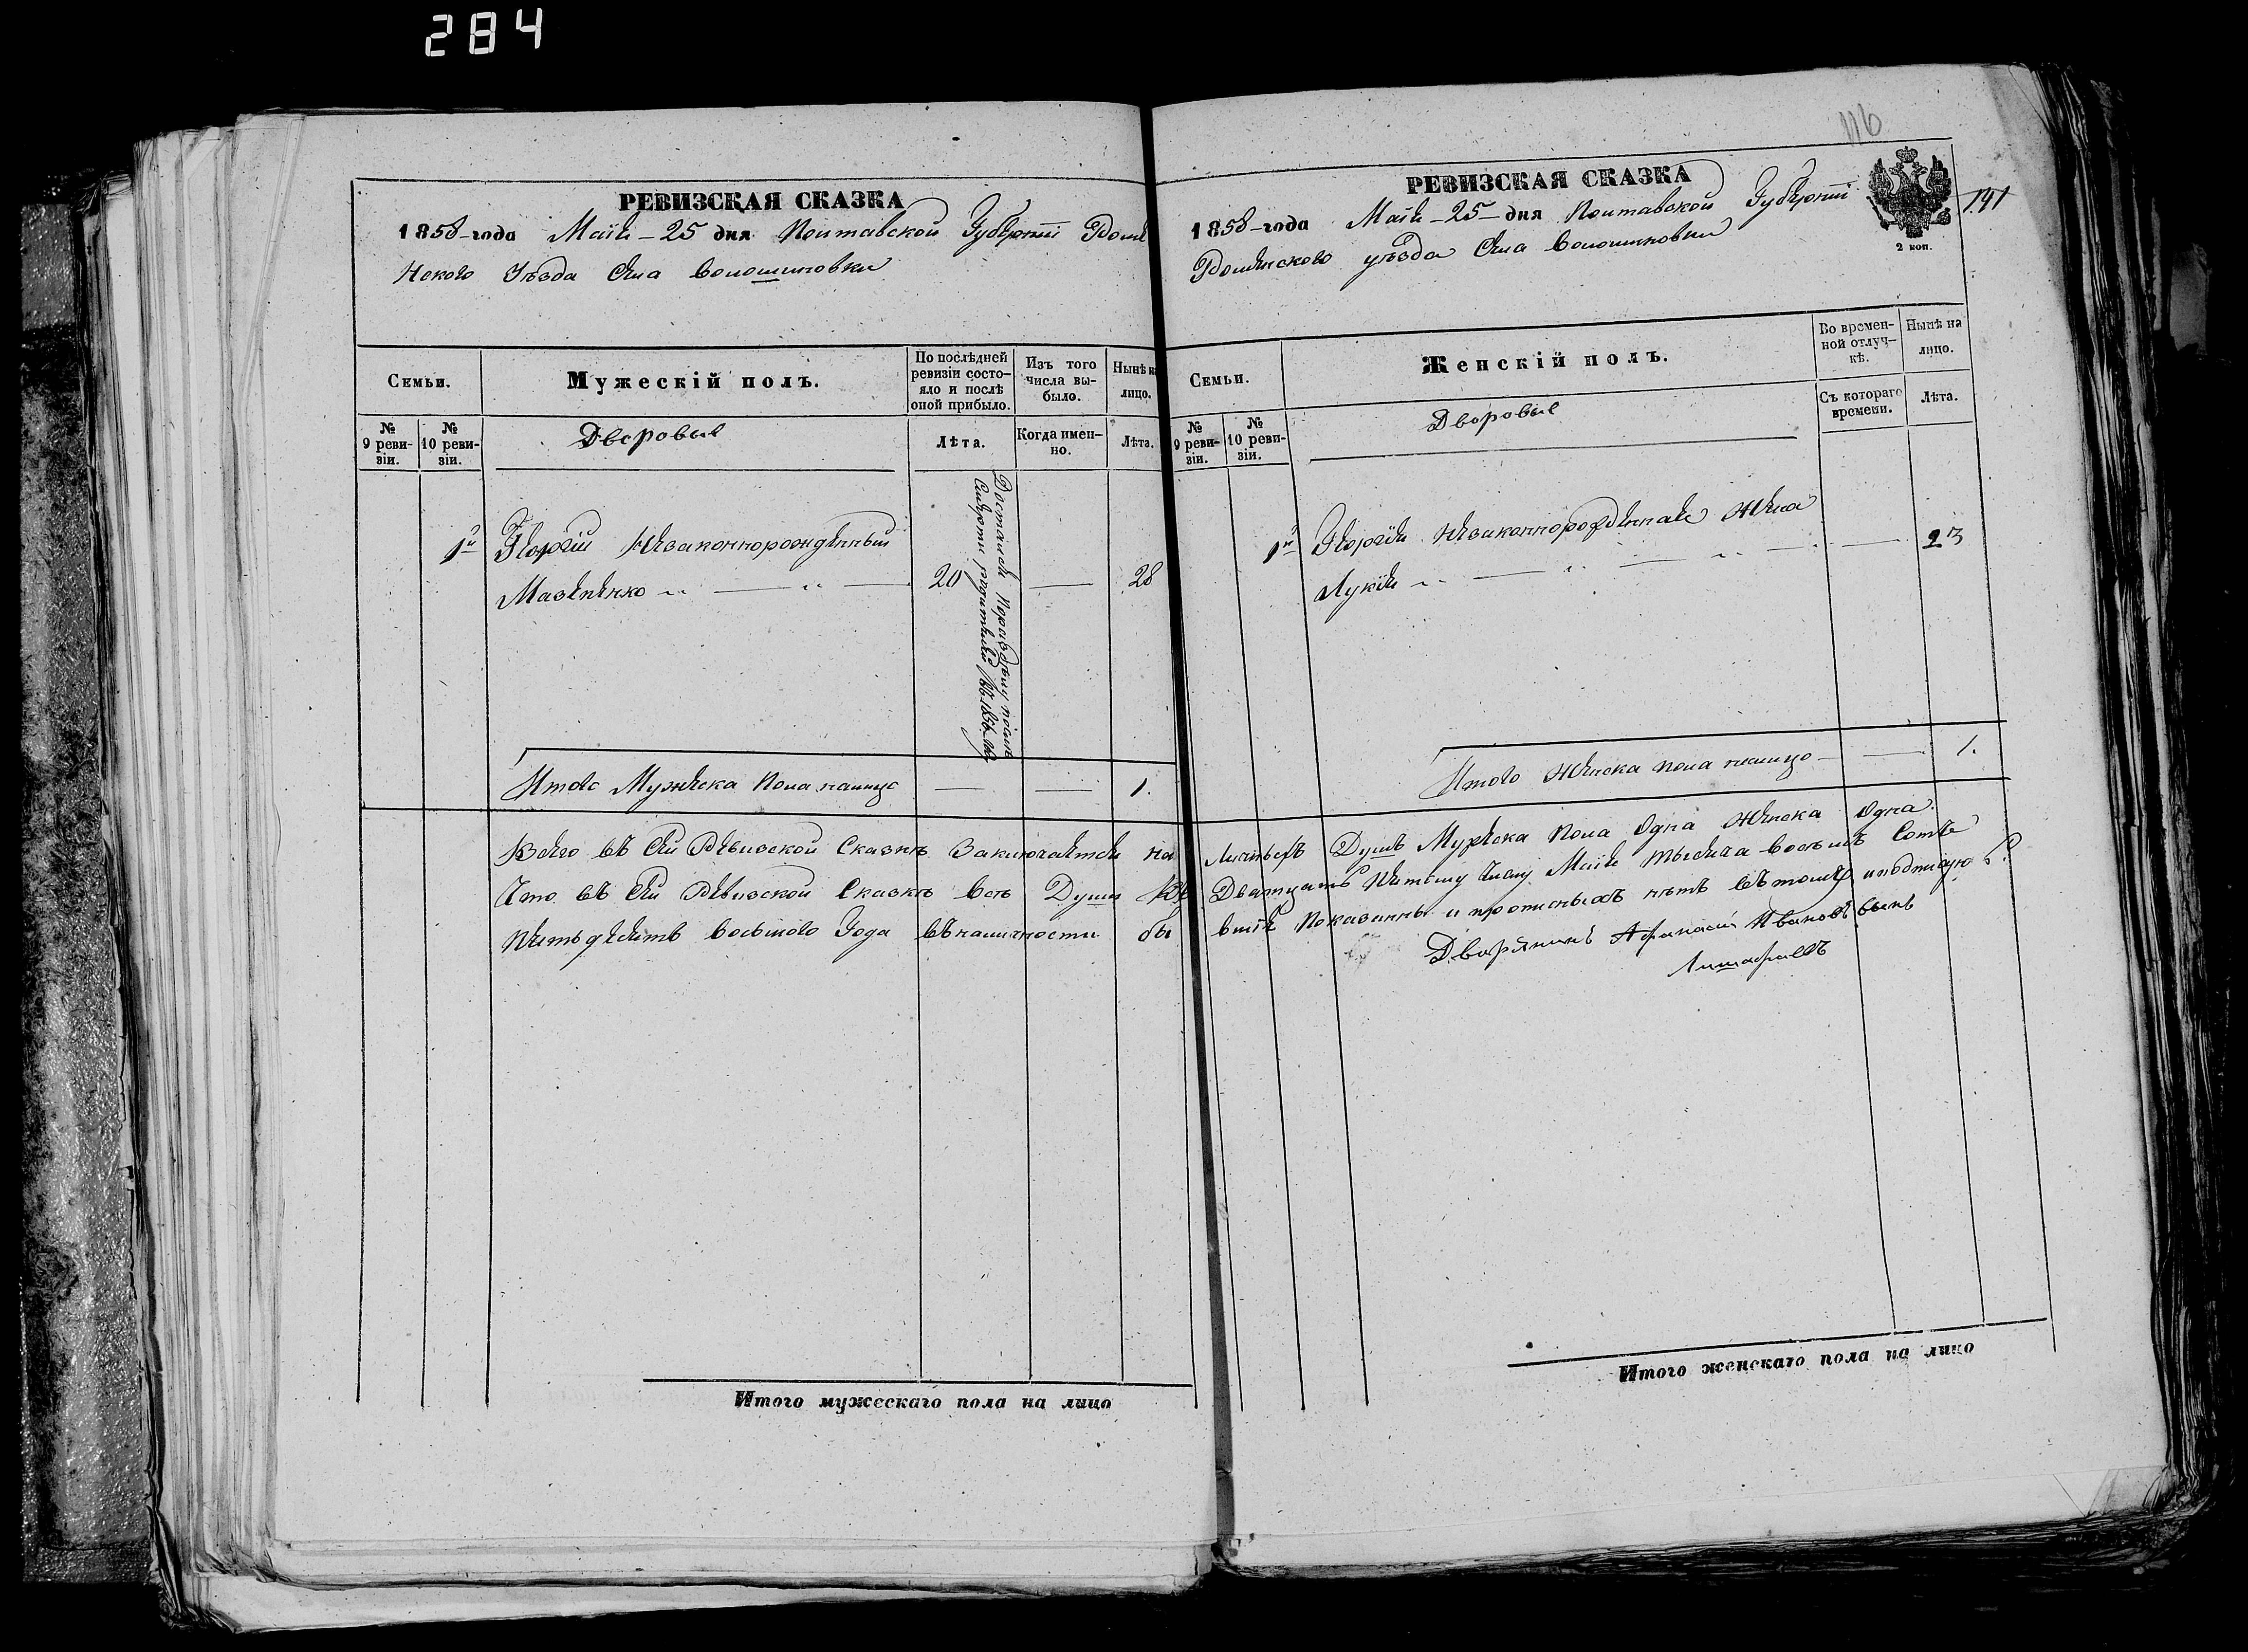 284
116
191
РЕВИЗСКАЯ СКАЗКА
1858-года Маія-25 дня Полтавской Губерніи Роме
нского Уезда Села Волошиновки
Семьи.
Мужескій полъ.
По послѣдней ревизіи состояло и послѣ оной прибыло.
Изъ того числа выбыло.
Нынѣ на лицо.
№ 9 ревизіи.
№ 10 ревизіи.
Дворовые
Лѣта.
Когда именно.
Лѣта.
1й Георгій Незаконнорожденный
Мазепенко 20 28
Достался по раздѣлу после
смерти родителей 1856 года
Итого Мужеска Пола налицо 1.
РЕВИЗСКАЯ СКАЗКА
1858-года Маія-25-дня Полтавской Губерніи
Роменского уезда Села Волошиновки
2 коп.
Семьи.
Женскій полъ.
Во временной отлучкѣ.
Нынѣ на лицо.
№ 9 ревизіи.
№ 10 ревизіи.
Дворовые
Съ котораго времени.
Лѣта.
1й Георгія Незаконнорожденнаго жена
Лукія 23
Итого женска пола налицо 1.
Всего въ сей Ревизской Сказкѣ Заключается на личныхъ Душъ Мужеска Пола Одна Женска Одна.
Что въ сей Ревизской Сказкѣ всѣ Души Къ Двадцать Пятому Числу Маія тысяча восемь Сотъ
Пятьдесятъ восьмого Года въ наличности бывшія Показанны и прописныхъ нѣтъ въ томъ и подписуюсь
Дворянинъ Афанасій Ивановъ сынъ
Итого мужескаго пола на лицо
Итого женскаго пола на лицо